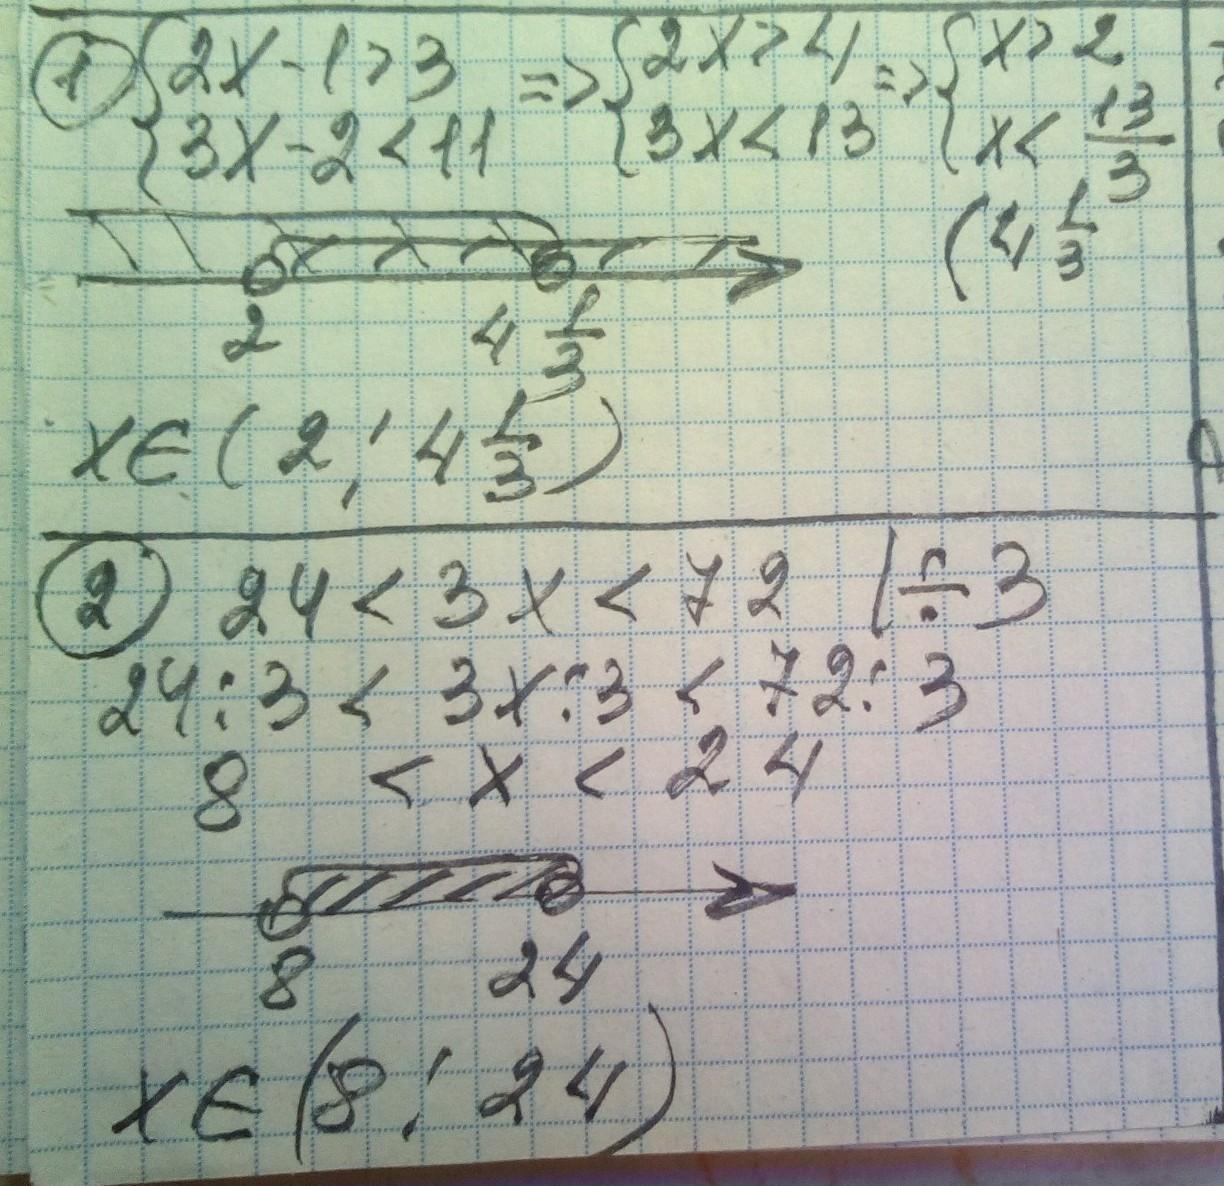 ① {2x - 1 > 3 => {2x > 4 => {x > 2
{3x - 2 < 11 {3x < 13 {x < 13/3
(4 1/3
2 4 1/3
x∈(2; 4 1/3)
② 24 < 3x < 72 | ÷ 3
24:3 < 3x:3 < 72:3
8 < x < 24
8 24
x∈(8; 24)